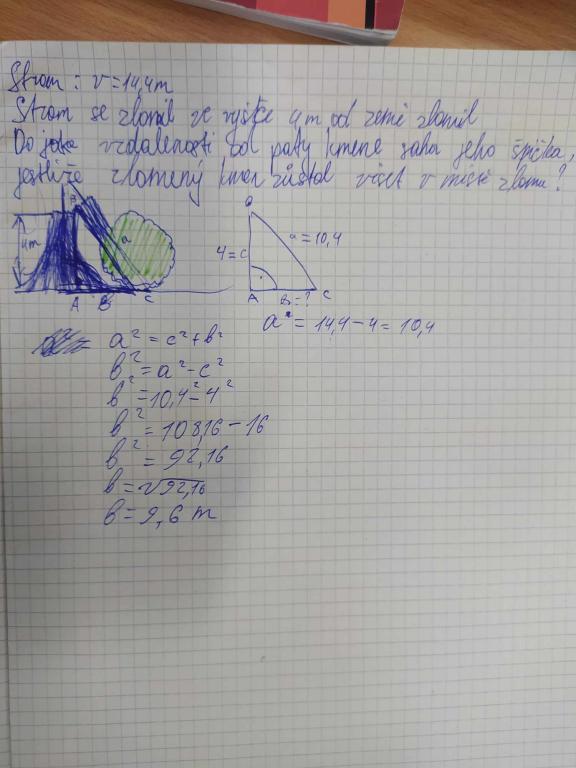 Strom: v=14,4m
Strom se zlomil ve výšce 4m od země zlomil
Do jaké vzdalenosti od paty kmene saha jeho špička,
jestliže zlomený kmen zůstal viset v místě zlomu?
4m
a
A B C
B
4=c
a=10,4
A B=? C
a = 14,4-4=10,4
a²=c²+b²
b²=a²-c²
b²=10,4²-4²
b²=108,16-16
b²=92,16
b=√92,16
b=9,6 m